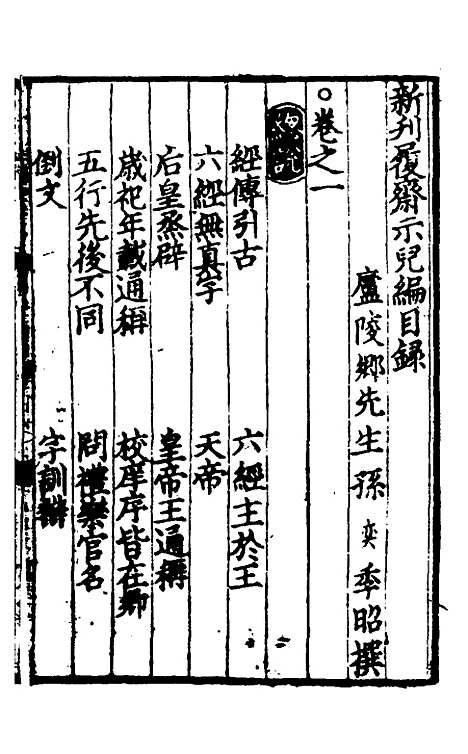 新刋履齋示兒編目録
廬陵鄉先生孫奕季昭撰
○卷之一
總說
經傳引古　六經主於王
六經無真字　天帝
后皇烝辟　皇帝王通稱
歳祀年載通稱　校庠序皆在鄉
五行先後不同　問禮樂官名
倒文　字訓辨